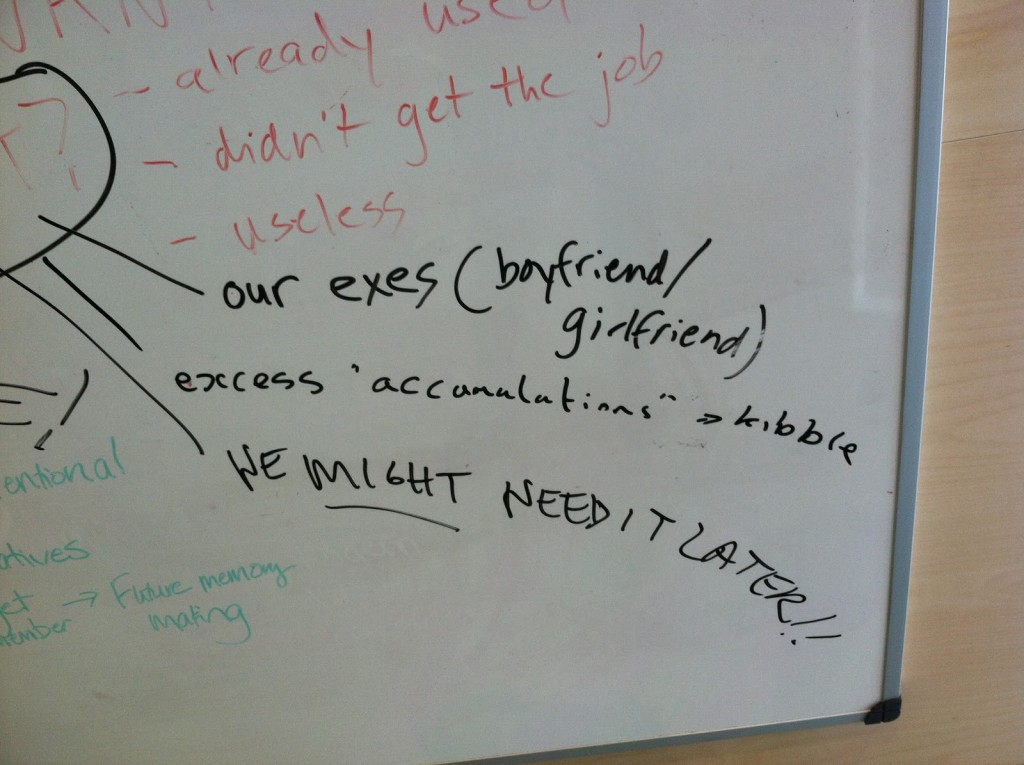 - already used
- didn't get the job
- useless
our exes (boyfriend/
girlfriend)
excess "accumulations" => kibble
WE MIGHT NEED IT LATER!!
entional
atives
→ Future memory
making